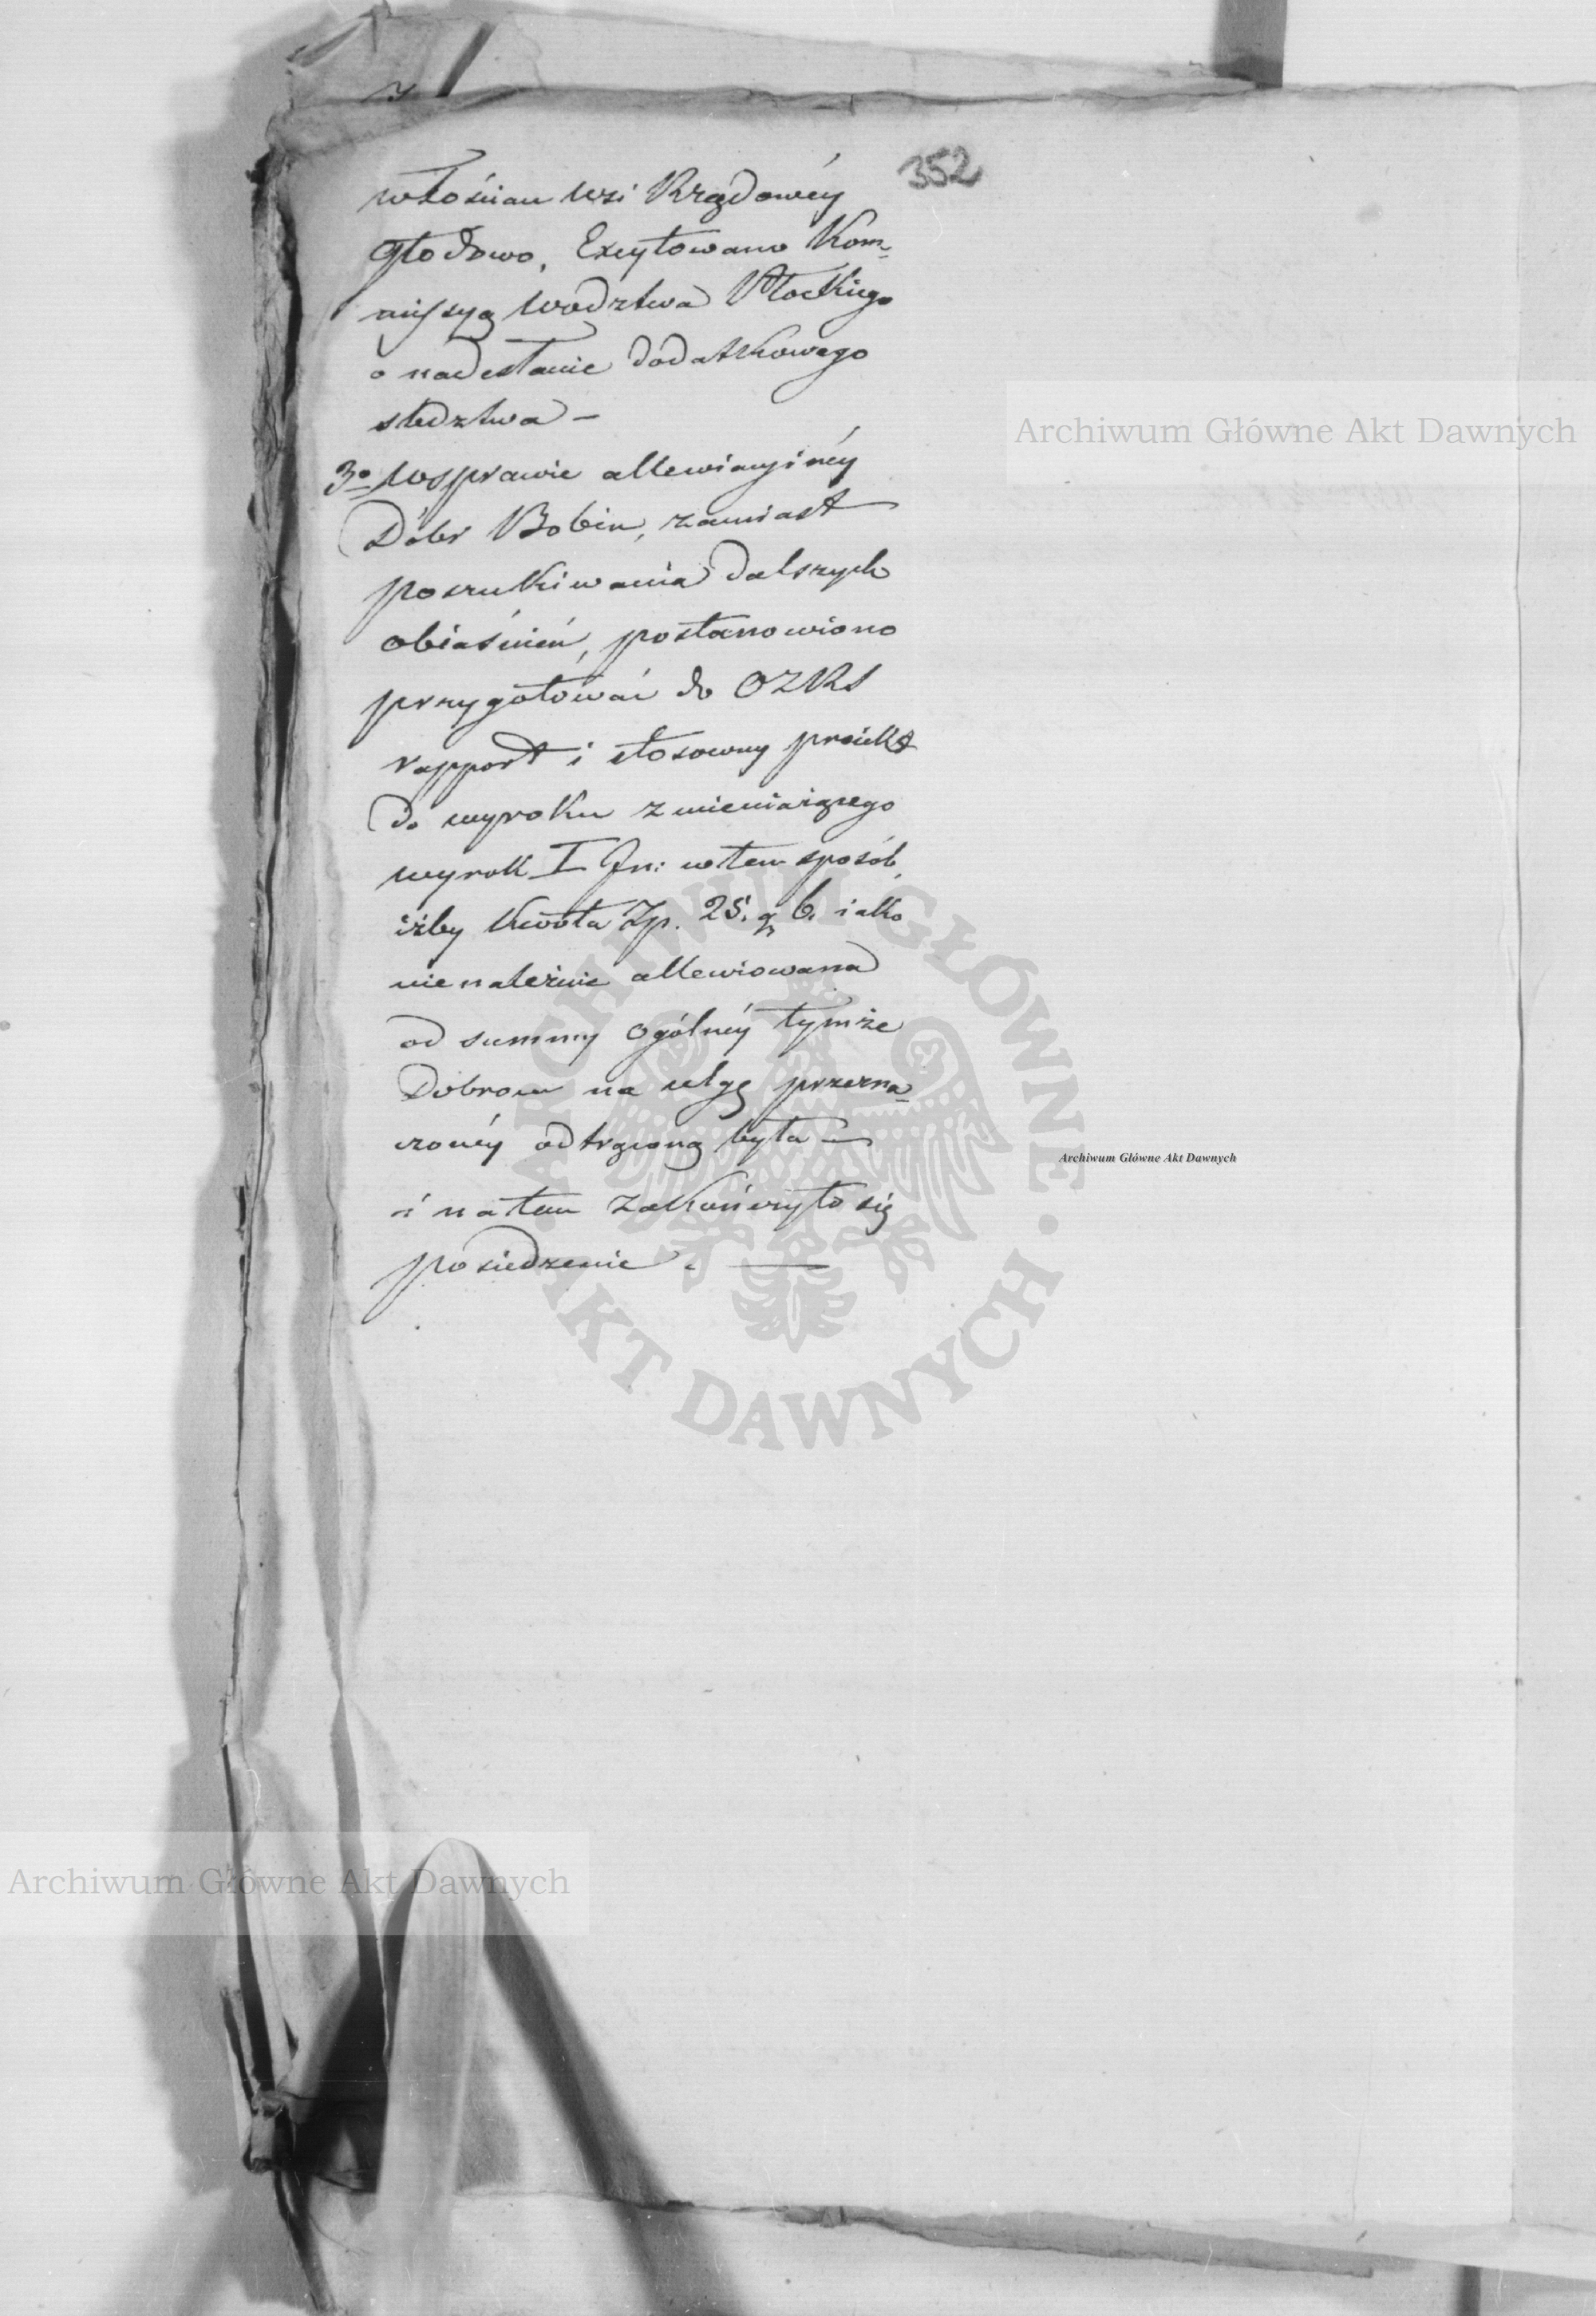 352
włościan wsi Rządowéy
Głodowo, Excytowano Kom„
missyą Wodztwa Płockiego
o nadesłanie dodatkowego
sledztwa –
3o W sprawie allewiacyinéy
Dóbr Bobin, zamiast
poszukiwania dalszych
obiaśnień, postanowiono
przygotować do OZRS
rapport i stosowny proiekt
do wyroku zmieniaiącego
wyrok I In: w tem sposób,
iżby kwota Zp. 25. g 6. iako
nienależnie allewiowana
od summy ogólnéy tymże
Dobrom na ulgę przezna„
czonéy odtrąconą była —
i na tem zakończyło się
posiedzenie. —
Archiwum Główne Akt Dawnych
Archiwum Główne Akt Dawnych
Archiwum Główne Akt Dawnych
ARCHIWUM GŁÓWNE · AKT DAWNYCH ·